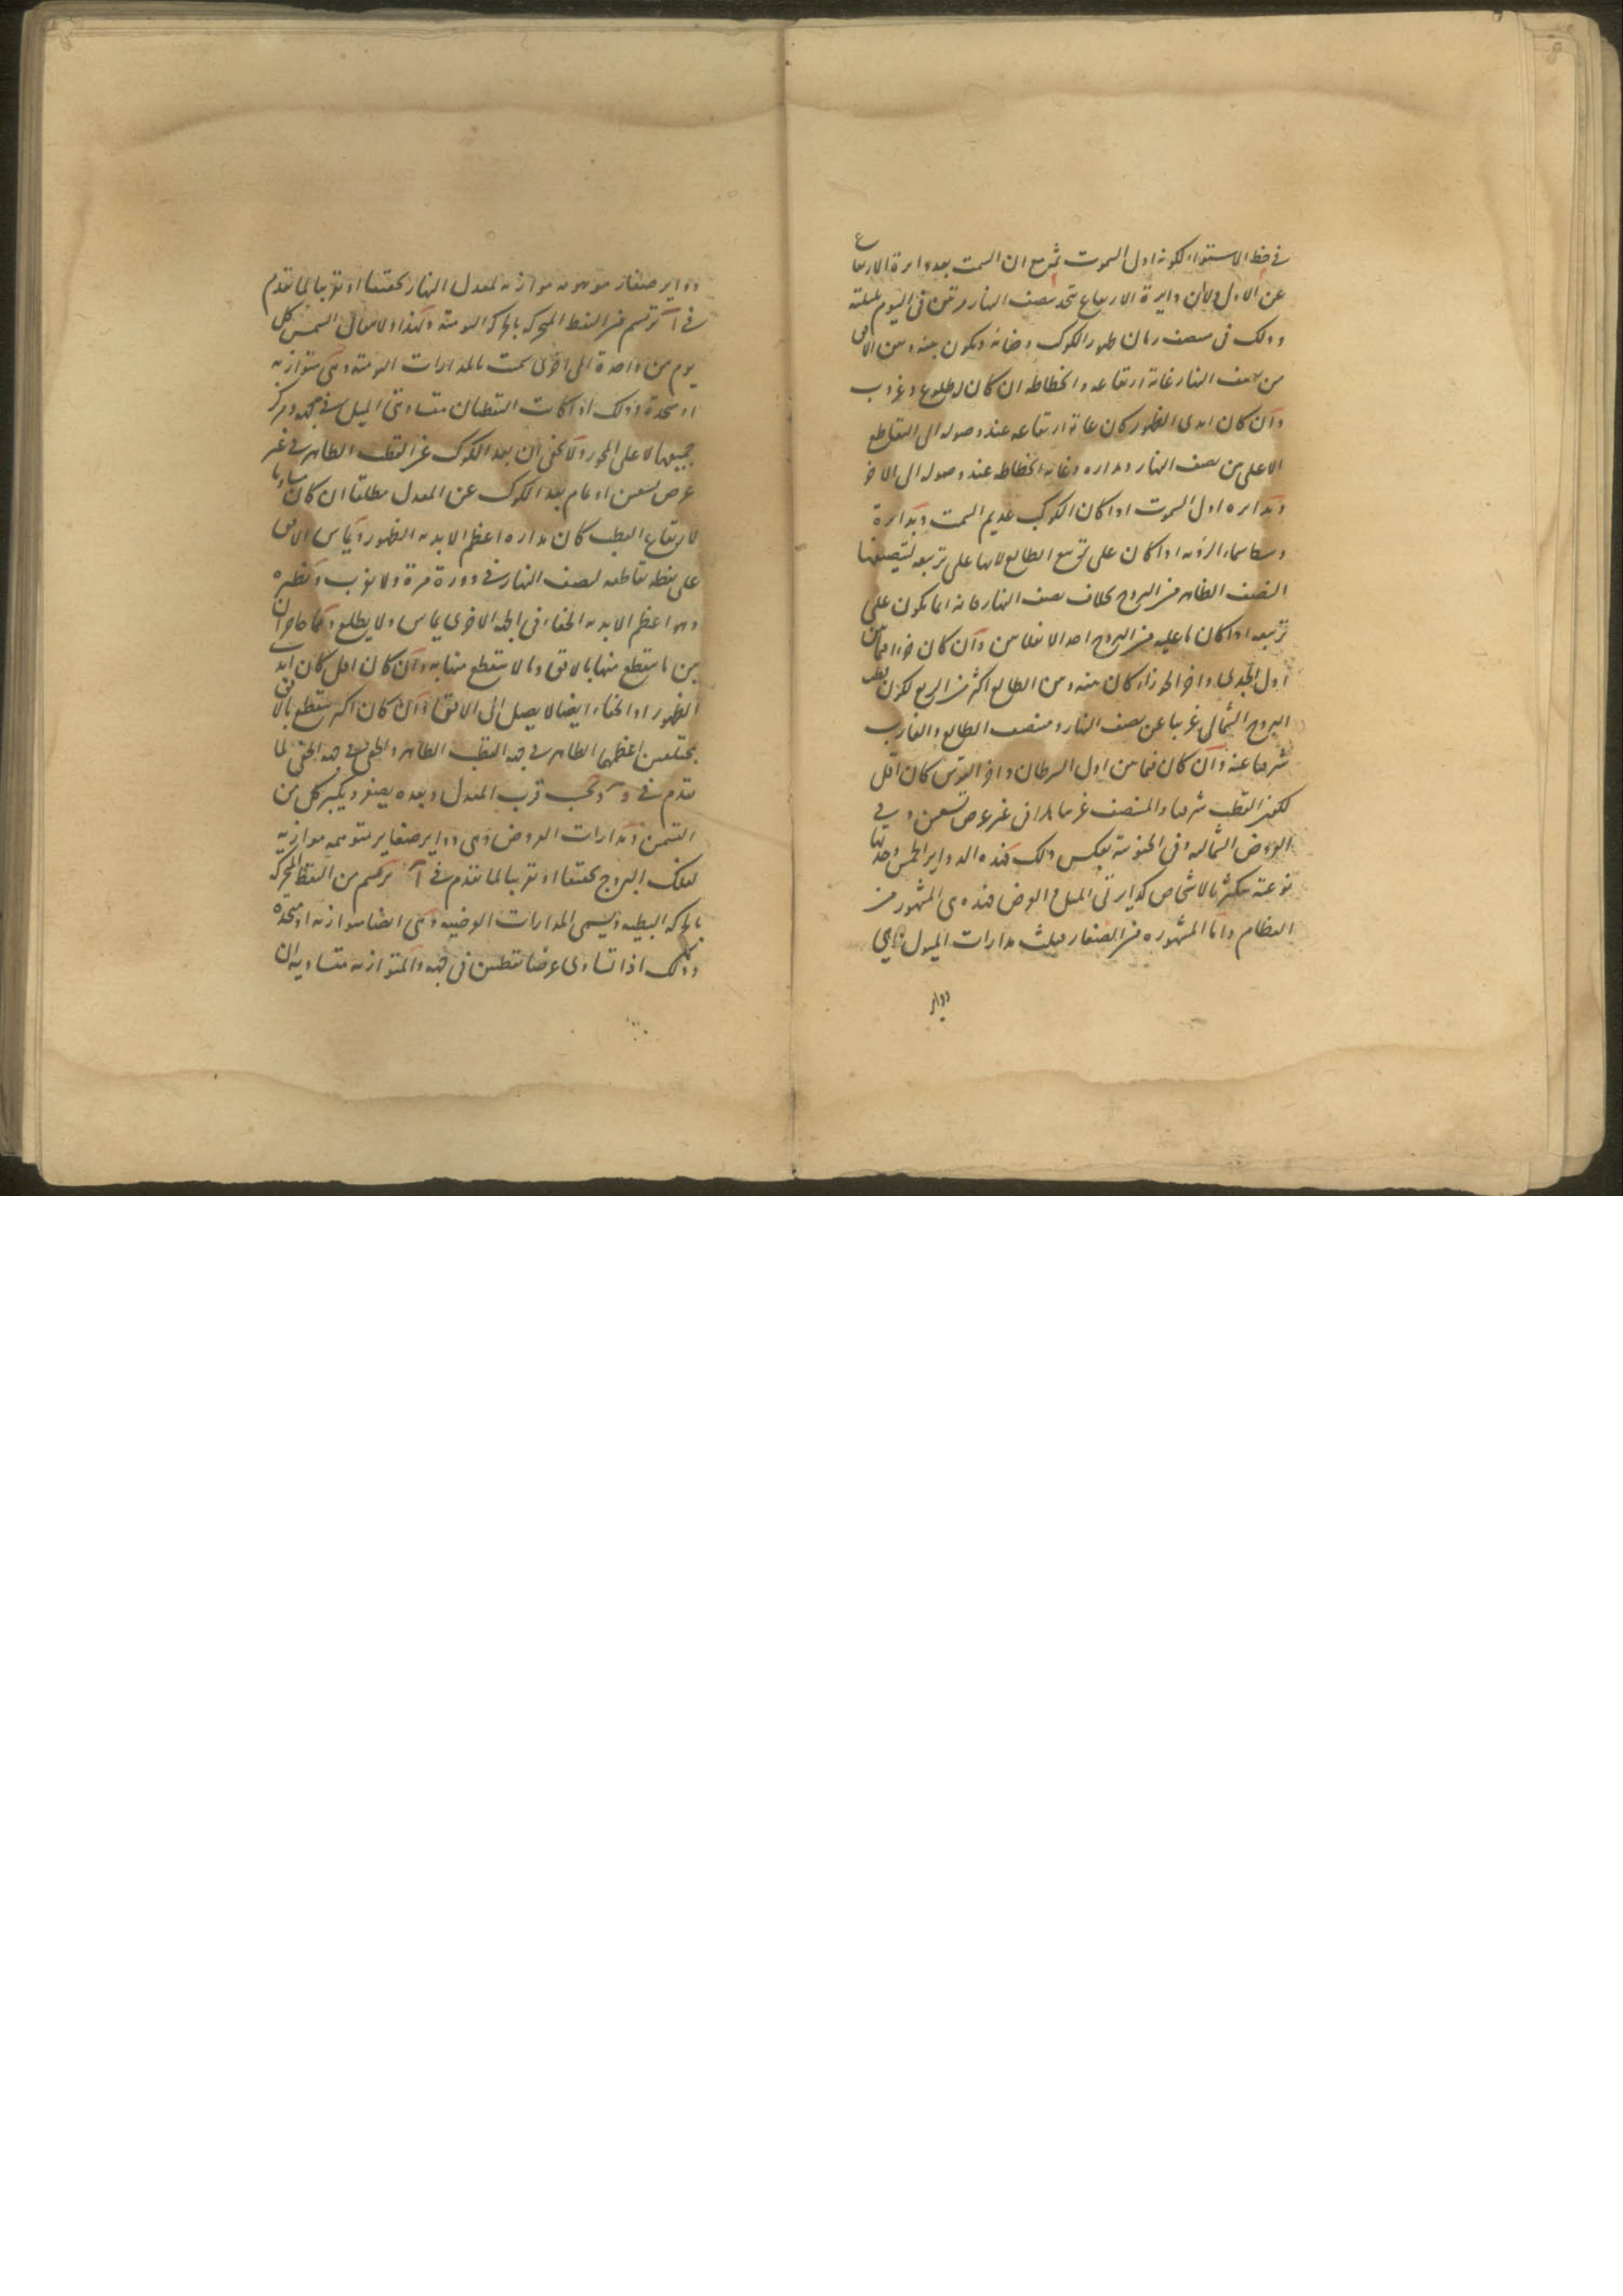 في خط الاستواء لكونه اول السموت ثم مع ان السمت بعد دايرة الارتفاع
عن الاول ولان دايرة الارتفاع تتحد بنصف النهار مرتين في اليوم بليلته
وذلك في منتصف زمان ظهور الكوكب وخفائه ويكون بينه وبين الافق
من نصف النهار غاية ارتفاعه وانحطاطه ان كان له طلوع وغروب
وان كان ابدي الظهور كان غاية ارتفاعه عند وصوله الى التقاطع
الاعلى من نصف النهار ومداره وغاية انحطاطه عند وصوله الى الاخر
وبدايرة اول السموت اذا كان الكوكب عديم السمت وبدايرة
وسط سماء الرؤية اذا كان على تربيع الطالع لانها على تربيعه لتنصيفها
النصف الظاهر من البروج بخلاف نصف النهار فانه انما يكون على
تربيعه اذا كان ما عليه من البروج احد الانقلابين وان كان جزءا مما بين
اول الجدي واخر الجوزاء كان بينه وبين الطالع اكثر من الربع لكون قطب
البروج الشمالي غربيا عن نصف النهار ومنتصف الطالع والغارب
شرقيا عنه وان كان فيما بين اول السرطان واخر القوس كان اقل
لكون القطب شرقيا والمنتصف غربيا في غير عرض تسعين وفي
العروض الشمالية وفي الجنوبية بعكس ذلك فهذه الدواير الخمس وحدتها
نوعية تتكثر بالاشخاص كدايرتي الميل والعرض فهذه هي المشهورة من
العظام واما المشهورة من الصغار فثلث مدارات الميول وهي
دواير
دواير صغار متوهمة موازية لمعدل النهار تحقيقا او تقريبا لما تقدم
في آ ترتسم من النقط المتحركة بالحركة اليومية ولهذا ولانتقال الشمس كل
يوم من واحدة الى اخرى سميت بالمدارات اليومية وهي متوازية
او متحدة وذلك اذا كانت النقطتان متساويتي الميل في جهة ومركز
جميعها على المحور ولا يخفى ان بعد الكوكب عن القطب الظاهر في غير
عرض تسعين او تمام بعد الكوكب عن المعدل مطلقا ان كان مساويا
لارتفاع القطب كان مداره اعظم الابدية الظهور ويماس الافق
على نقطة تقاطعه لنصف النهار في دورة مرة ولا يغرب ونظيره
وهو اعظم الابدية الخفاء في الجهة الاخرى يماس ولا يطلع وهما حاجزان
بين ما يتقطع منها بالافق وما لا يتقطع منها به وان كان اقل كان ابدي
الظهور او الخفاء ايضا لا يصل الى الافق وان كان اكثر يتقطع بالافق
بمختلفين اعظمهما الظاهر في جهة القطب الظاهر والخفي في جهة الخفي لما
تقدم في و وبحسب قرب المعدل وبعده يصغر ويكبر كل من
القسمين ومدارات العروض وهي دواير صغاير متوهمة موازية
لفلك البروج تحقيقا او تقريبا لما تقدم في آ ترتسم من النقط المتحركة
بالحركة البطيئة وتسمى المدارات العرضية وهي ايضا متوازية او متحدة
وذلك اذا تساوى عرضا نقطتين في جهة والمتوازية متساويتان